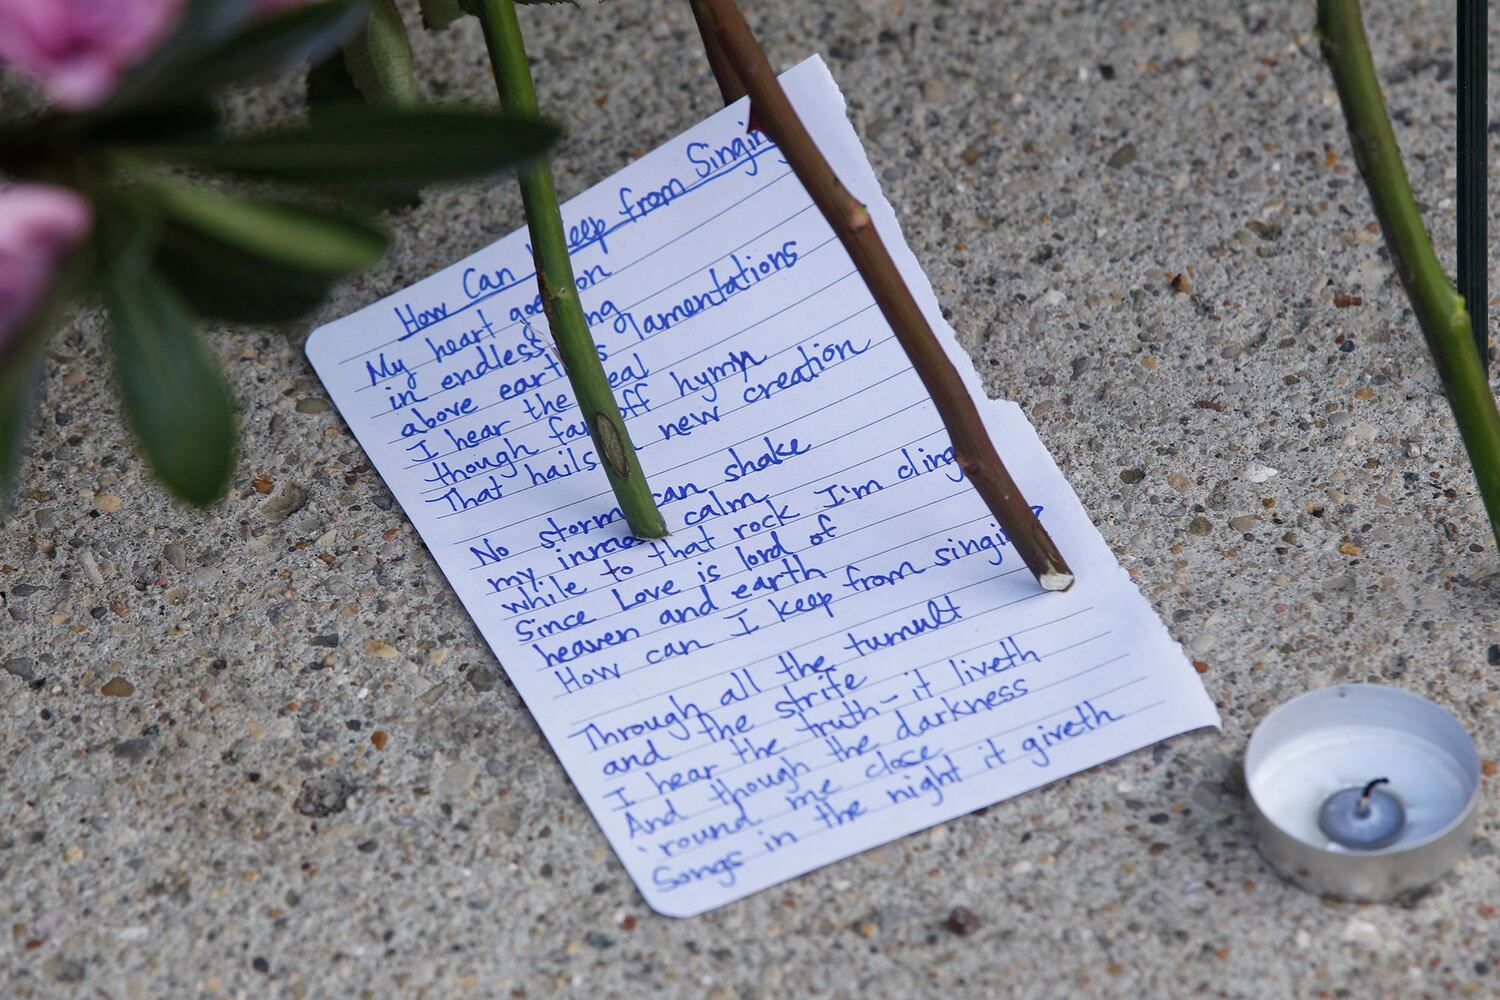 How Can Keep from Singing
My heart goes on
in endless song
above earth's lamentations
I hear the real
though far off hymn
That hails a new creation
No storm can shake
my inmost calm
while to that rock I'm clinging
Since Love is lord of
heaven and earth
How can I keep from singing?
Through all the tumult
and the strife
I hear the truth - it liveth
And though the darkness
'round me close
Songs in the night it giveth